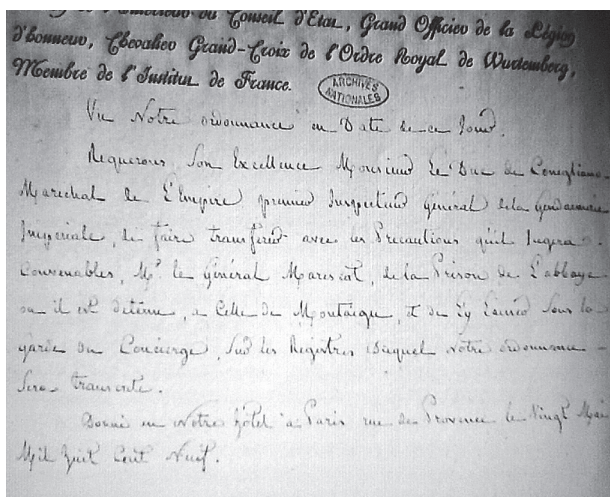 du Conseil d'Etat, Grand Officier de la Légion
d'honneur, Chevalier Grand-Croix de l'Ordre Royal de Wurtemberg,
Membre de l'Institut de France.
ARCHIVES
NATIONALES
Vu Notre ordonnance en Date de ce Jour.
Requerons Son Excellence Monsieur Le Duc de Conegliano
Marechal de L'Empire premier Inspecteur Général de la Gendarmerie
Imperiale, de faire transferer avec les Precautions qu'il Jugera
Convenables, Mr. le Général Marescot, de la Prison de L'abbaye
ou il est detenu, a Celle de Montaigu, et de L'y Ecrouer Sous la
garde du Concierge, Sur les Registres Duquel Notre ordonnance
Sera transcrite.
Donné en Notre hôtel à Paris rue de Provence le Vingt Mai
Mil huit Cent Neuf.